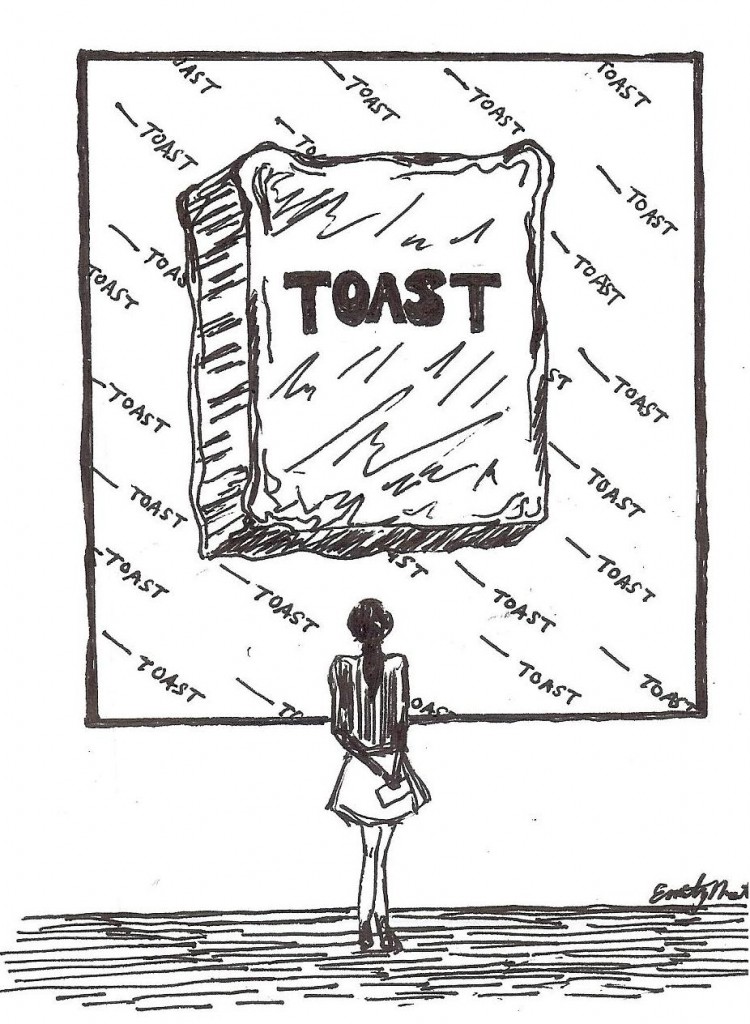 TOAST
TOAST
TOAST
TOAST
TOAST
TO
TOAST
TOAS
TOAST
TOAST
TOAST
TOAST
ST
TOAST
TOAST
TOAST
TOAST
AST
TOAST
TOAST
TOAST
TOAST
TOAST
TOAST
TOAST
TO
OAS